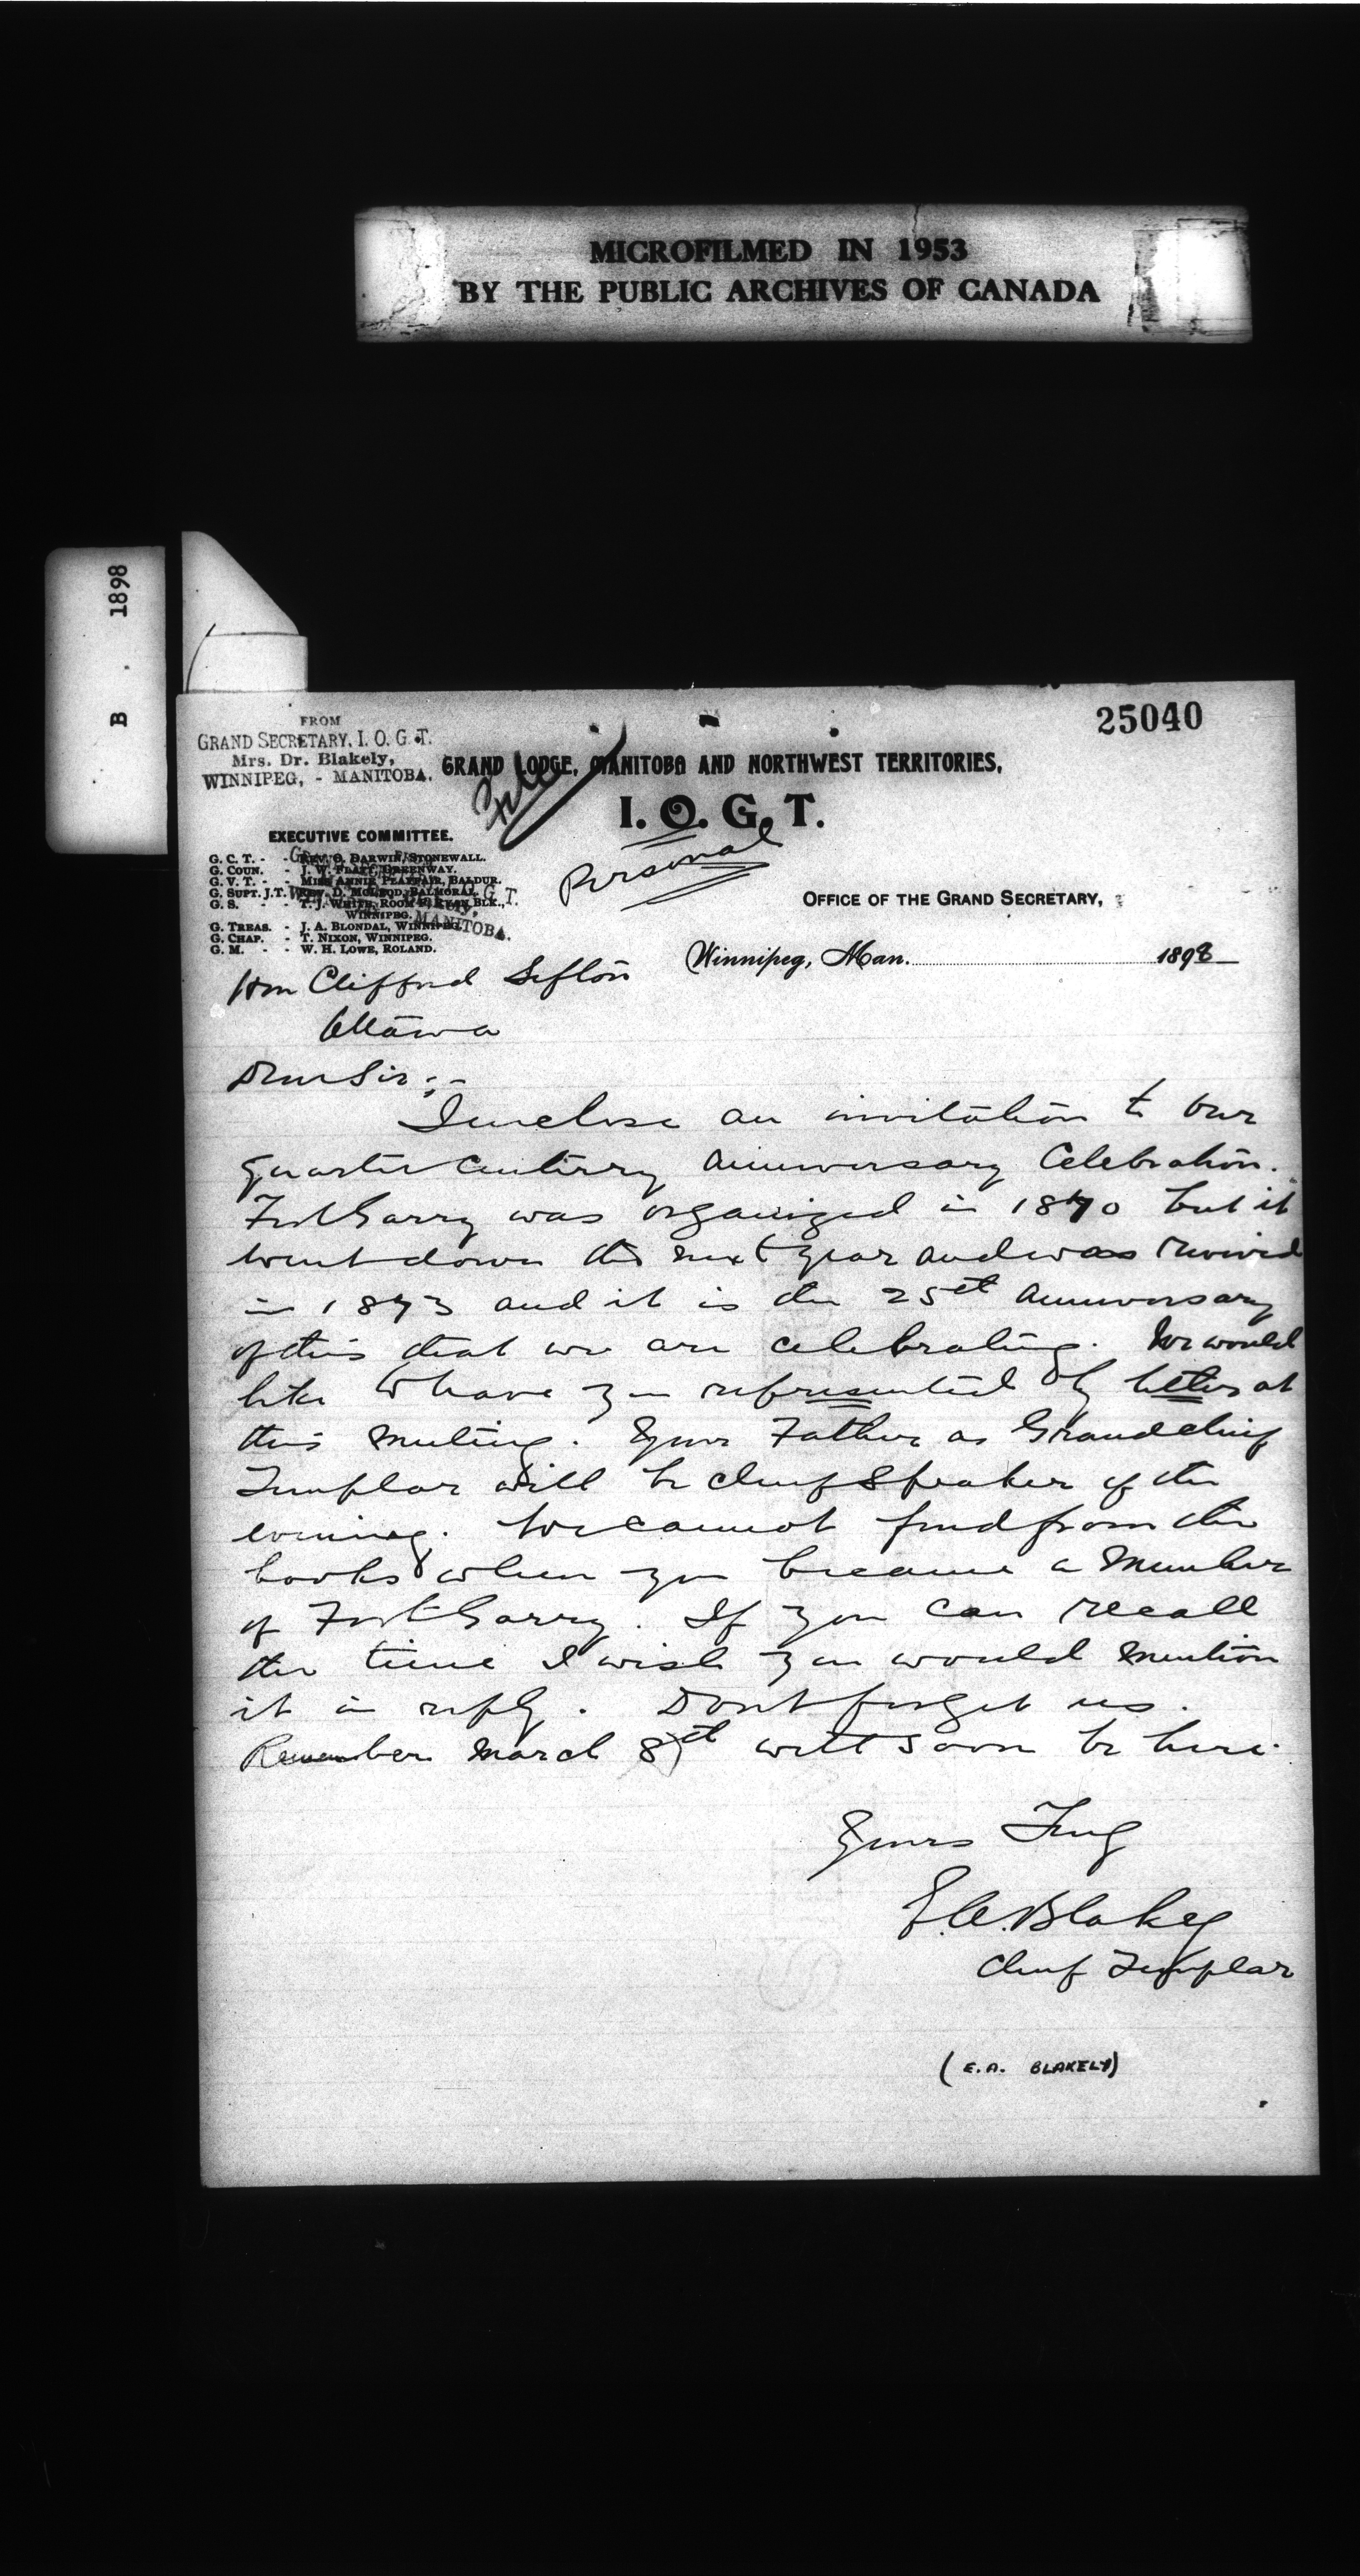 MICROFILMED IN 1953
BY THE PUBLIC ARCHIVES OF CANADA
B . 1898
25040
FROM
GRAND SECRETARY, I. O. G. T.
Mrs. Dr. Blakely,
WINNIPEG, - MANITOBA.
GRAND LODGE, MANITOBA AND NORTHWEST TERRITORIES,
I. O. G. T.
File
Personal
EXECUTIVE COMMITTEE.
G. C. T. - - REV. O. DARWIN, STONEWALL.
G. COUN. - J. W. PLATT, GREENWAY.
G. V. T. - - MISS ANNIE PLAYFAIR, BALDUR.
G. SUPT. J.T. REV. D. MCLEOD, BALMORAL.
G. S. - T. J. WHITE, ROOM RYAN BLK.,
WINNIPEG.
G. TREAS. - J. A. BLONDAL, WINNIPEG.
G. CHAP. - T. NIXON, WINNIPEG.
G. M. - - W. H. LOWE, ROLAND.
MANITOBA.
OFFICE OF THE GRAND SECRETARY,
Winnipeg, Man. 1898
Hon Clifford Sifton
Ottawa
Dear Sir:-
I enclose an invitation to our
quarter century anniversary Celebration.
Fort Garry was organized in 1870 but it
went down the next year and was revived
in 1873 and it is the 25th anniversary
of this that we are celebrating. We would
like to have you represented by letter at
this meeting. Your Father as Grand chief
Templar will be chief Speaker of the
evening. We cannot find from the
books when you became a Member
of Fort Garry. If you can recall
the time I wish you would mention
it in reply. Dont forget us.
Remember March 8th will soon be here.
Yours Truly
E.A. Blakely
Chief Templar
(E.A. BLAKELY)